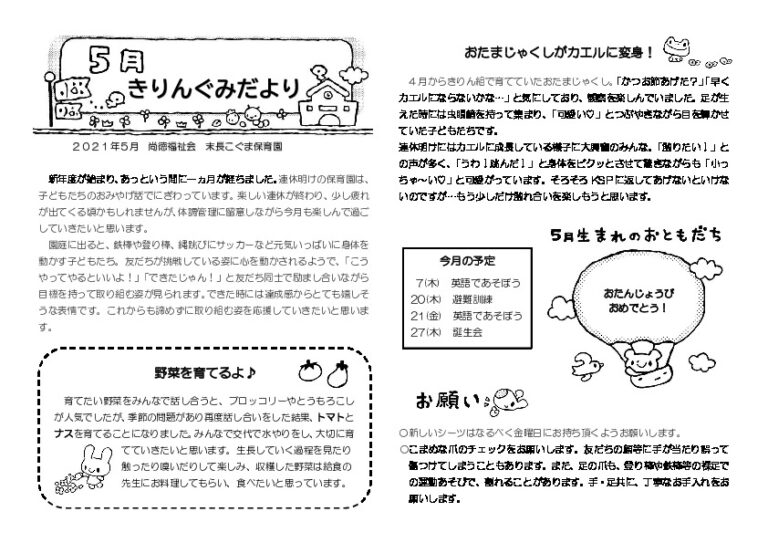 5月
きりんぐみだより
2021年5月 尚徳福祉会 末長こぐま保育園
新年度が始まり、あっという間に一ヵ月が経ちました。連休明けの保育園は、
子どもたちのおみやげ話でにぎわっています。楽しい連休が終わり、少し疲れ
が出てくる頃かもしれませんが、体調管理に留意しながら今月も楽しんで過ご
していきたいと思います。
園庭に出ると、鉄棒や登り棒、縄跳びにサッカーなど元気いっぱいに身体を
動かす子どもたち。友だちが挑戦している姿に心を動かされるようで、「こう
やってやるといいよ!」「できたじゃん!」と友だち同士で励まし合いながら
目標を持って取り組む姿が見られます。できた時には達成感からとても嬉しそ
うな表情です。これからも諦めずに取り組む姿を応援していきたいと思いま
す。
野菜を育てるよ♪
育てたい野菜をみんなで話し合うと、ブロッコリーやとうもろこし
が人気でしたが、季節の問題があり再度話し合いをした結果、トマトと
ナスを育てることになりました。みんなで交代で水やりをし、大切に育
てていきたいと思います。生長していく過程を見たり
触ったり嗅いだりして楽しみ、収穫した野菜は給食の
先生にお料理してもらい、食べたいと思っています。
おたまじゃくしがカエルに変身!
4月からきりん組で育てていたおたまじゃくし。「かつお節あげた?」「早く
カエルにならないかな…」と気にしており、観察を楽しんでいました。足が生
えた時には虫眼鏡を持って集まり、「可愛い♡」とつぶやきながら目を輝かせ
ていた子どもたちです。
連休明けにはカエルに成長している様子に大興奮のみんな。「触りたい!」と
の声が多く、「うわ!跳んだ!」と身体をビクッとさせて驚きながらも「小っ
ちゃ〜い♡」と可愛がっています。そろそろKSPに返してあげないといけな
いのですが…もう少しだけ触れ合いを楽しもうと思います。
5月生まれのおともだち
今月の予定
7(木) 英語であそぼう
20(木) 避難訓練
21(金) 英語であそぼう
27(木) 誕生会
おたんじょうび
おめでとう!
お願い
○新しいシーツはなるべく金曜日にお持ち頂くようお願いします。
○こまめな爪のチェックをお願いします。友だちの顔等に手が当たり誤って
傷つけてしまうこともあります。また、足の爪も、登り棒や鉄棒等の裸足で
の運動あそびで、割れることがあります。手・足共に、丁寧なお手入れをお
願いします。